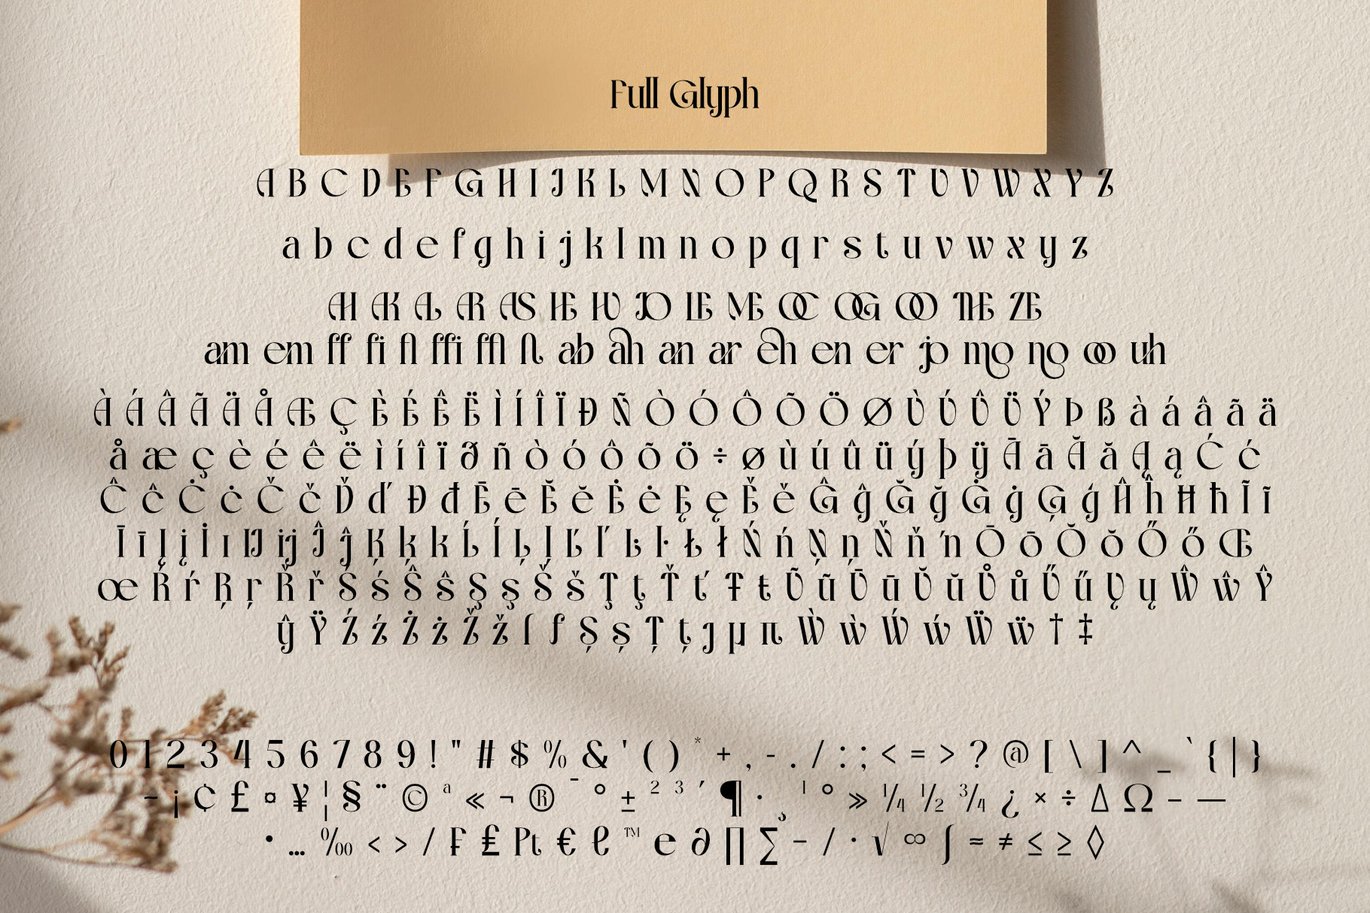 Full Glyph
A B C D E F G H I J K L M N O P Q R S T U V W X Y Z
a b c d e f g h i j k l m n o p q r s t u v w x y z
AH AK AL AR AS HE HU JO LE ME OC OG OO THE ZE
am em ff fi fl ffi ffl fl ab ah an ar eh en er jo mo no oo uh
À Á Â Ã Ä Å Æ Ç È É Ê Ë Ì Í Î Ï Ð Ñ Ò Ó Ô Õ Ö Ø Ù Ú Û Ü Ý Þ ß à á â ã ä
å æ ç è é ê ë ì í î ï ð ñ ò ó ô õ ö ÷ ø ù ú û ü ý þ ÿ Ā ā Ă ă Ą ą Ć ć
Ĉ ĉ Ċ ċ Č č Ď ď Đ đ Ē ē Ĕ ĕ Ė ė Ę ę Ě ě Ĝ ĝ Ğ ğ Ġ ġ Ģ ģ Ĥ ĥ Ħ ħ Ĩ ĩ
Ī ī Į į İ ı Ĳ ĳ Ĵ ĵ Ķ ķ ĸ Ĺ ĺ Ļ ļ Ľ ľ Ŀ ŀ Ł ł Ń ń Ņ ņ Ň ň ŉ Ō ō Ŏ ŏ Ő ő Œ
œ Ŕ ŕ Ŗ ŗ Ř ř Ś ś Ŝ ŝ Ş ş Š š Ţ ţ Ť ť Ŧ ŧ Ũ ũ Ū ū Ŭ ŭ Ů ů Ű ű Ų ų Ŵ ŵ Ŷ
ŷ Ÿ Ź ź Ż ż Ž ž ſ ƒ Ș ș Ț ț ȷ µ π Ẁ ẁ Ẃ ẃ Ẅ ẅ † ‡
0 1 2 3 4 5 6 7 8 9 ! " # $ % & ' ( ) * + , - . / : ; < = > ? @ [ \ ] ^ _ ` { | }
– ¡ ¢ £ ¤ ¥ ¦ § ¨ © ª « ¬ ® ¯ ° ± ² ³ ´ ¶ · ¸ ¹ º » ¼ ½ ¾ ¿ × ÷ ∆ Ω – —
• … ‰ < > / ₣ ₤ Pt € ℓ ™ ℮ ∂ ∏ ∑ − / · √ ∞ ∫ ≈ ≠ ≤ ≥ ◊